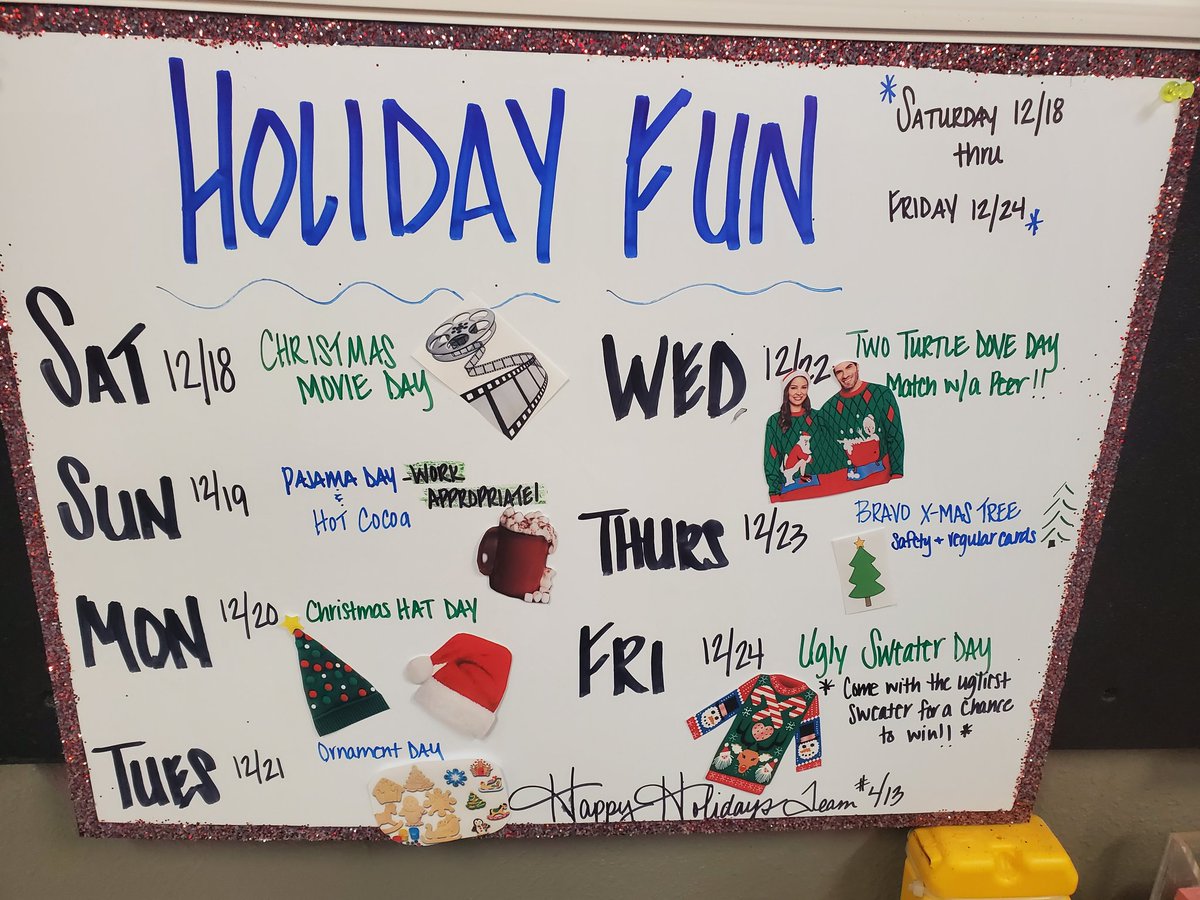 HOLIDAY FUN
*SATURDAY 12/18
thru
FRIDAY 12/24*
SAT 12/18 CHRISTMAS
MOVIE DAY
SUN 12/19 PAJAMA DAY -WORK
APPROPRIATE!
&
HOT COCOA
MON 12/20 Christmas HAT DAY
TUES 12/21 Ornament DAY
WED 12/22 TWO TURTLE DOVE DAY
Match w/a Peer!!
THURS 12/23 BRAVO X-MAS TREE
Safety + regular cards
FRI 12/24 Ugly Sweater DAY
* Come with the ugliest
sweater for a chance
to win!! *
Happy Holidays Team #413